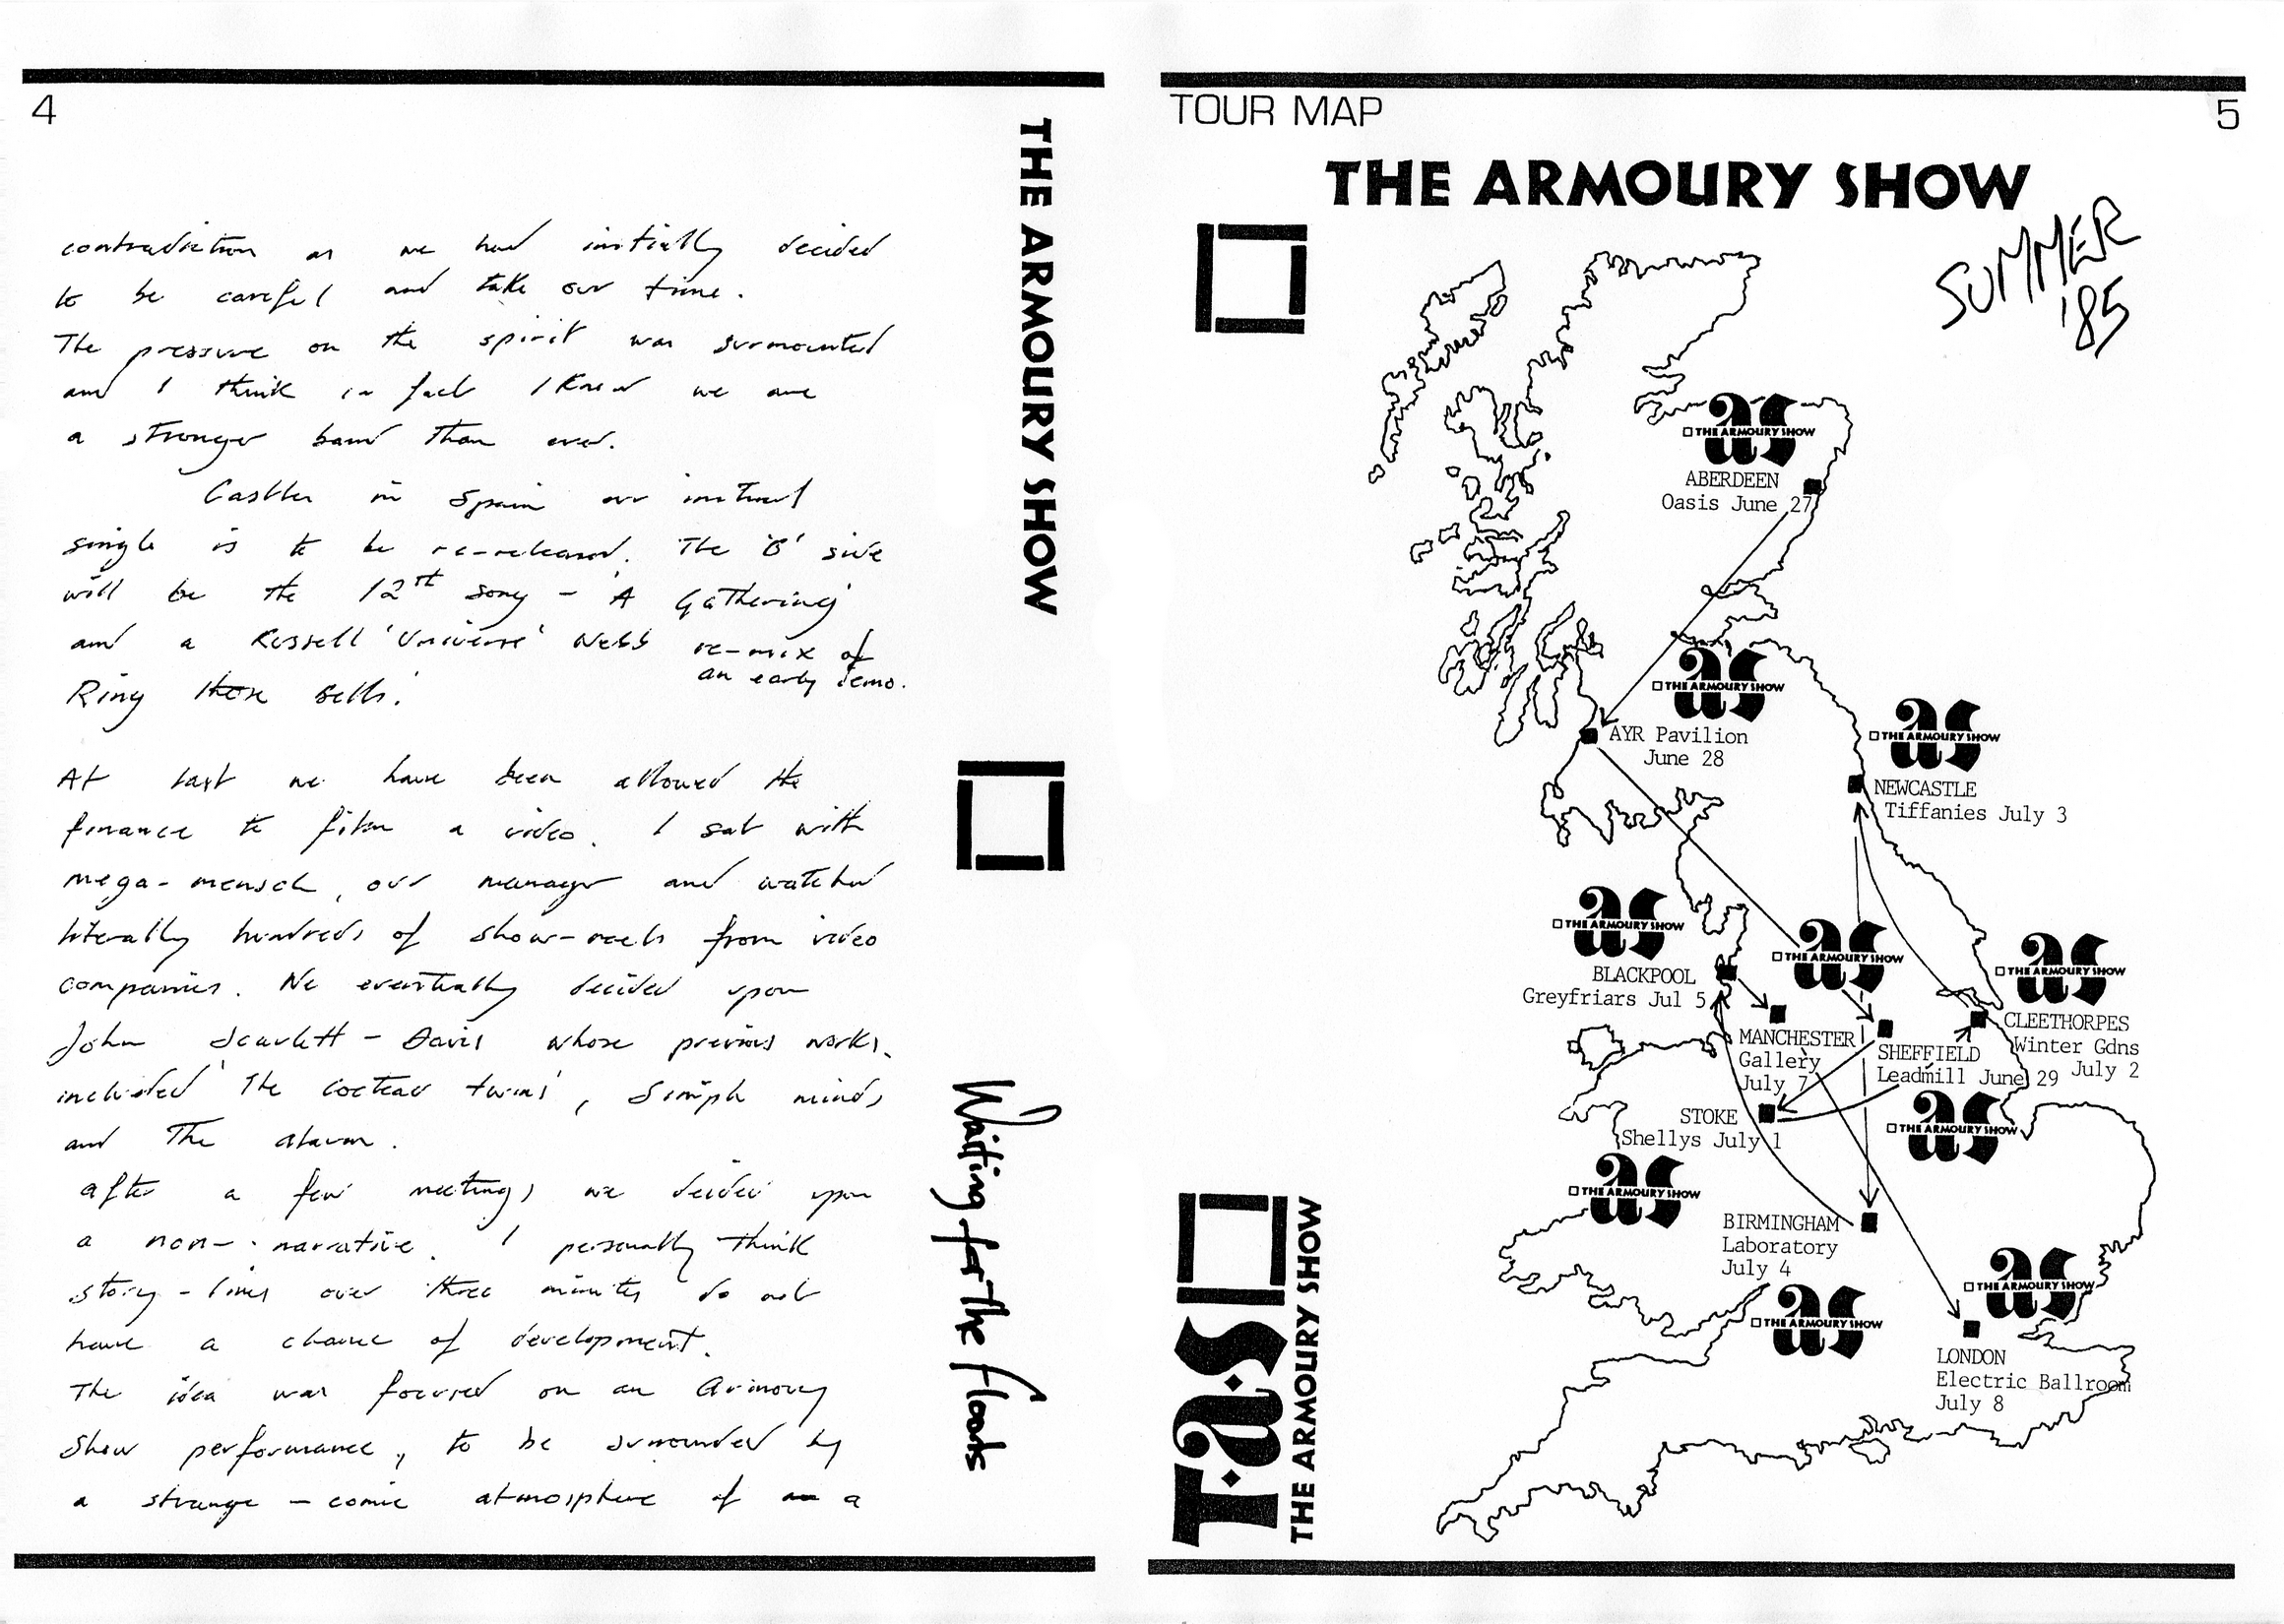 4
THE ARMOURY SHOW
contradiction as we had initially decided
to be careful and take our time.
The pressure on the spirit was surmounted
and I think in fact I know we are
a stronger band than ever.
Castles in Spain our initial
single is to be re-released. The 'B' side
will be the 12th song - 'A Gathering'
and a Russell 'Universe' Webb re-mix of
an early demo.
Ring those bells.
At last we have been allowed the
finance to film a video. I sat with
mega-mensch, our manager and watched
literally hundreds of show-reels from video
companies. We eventually decided upon
John Scarlett-Davis whose previous works,
included 'The cocteau twins', Simple minds
and The alarm.
after a few meetings we decided upon
a non-narrative. I personally think
story-lines over three minutes do not
have a chance of development.
The idea was focused on an Armoury
Show performance, to be surrounded by
a strange-comic atmosphere of a
Waiting for the Floods
TOUR MAP
5
THE ARMOURY SHOW
SUMMER
'85
as
THE ARMOURY SHOW
ABERDEEN
Oasis June 27
as
THE ARMOURY SHOW
AYR Pavilion
June 28
as
THE ARMOURY SHOW
NEWCASTLE
Tiffanies July 3
as
THE ARMOURY SHOW
BLACKPOOL
Greyfriars Jul 5
as
THE ARMOURY SHOW
MANCHESTER
Gallery
July 7
as
THE ARMOURY SHOW
CLEETHORPES
Winter Gdns
July 2
SHEFFIELD
Leadmill June 29
as
THE ARMOURY SHOW
STOKE
Shellys July 1
as
THE ARMOURY SHOW
BIRMINGHAM
Laboratory
July 4
as
THE ARMOURY SHOW
as
THE ARMOURY SHOW
LONDON
Electric Ballroom
July 8
T.A.S
THE ARMOURY SHOW